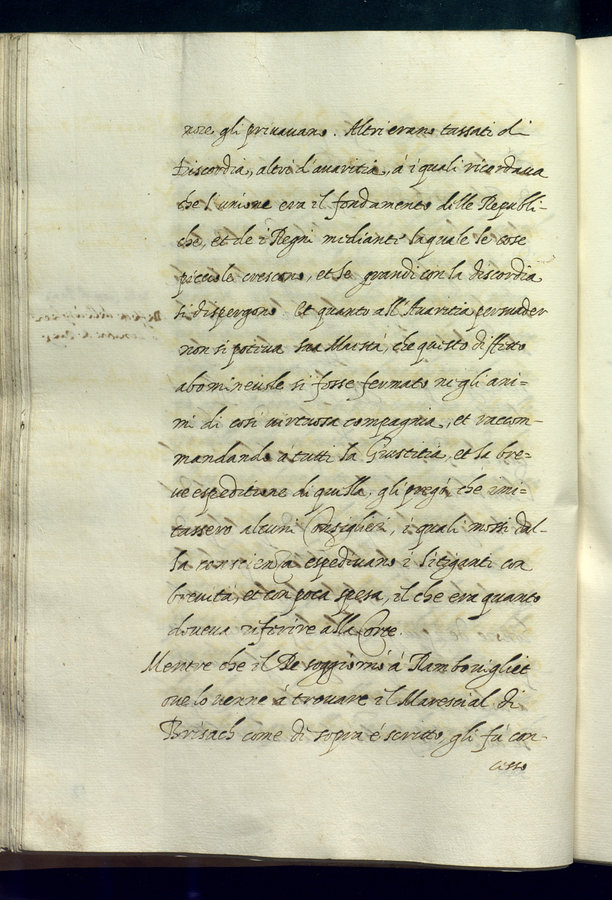 nore, gli privavano. Altri erano tassati di
Discordia, altri d'avaritia, à i quali ricordava
che l'unione era il fondamento delle Republi-
che, et de i Regni mediante la quale le cose
picciole crescono, et le grandi con la discordia
si dispergono Et quanto all'Avaritia persuader
non si poteva Sua Maestà, che questo diffetto
abominevole si fosse fermato ne gli ani-
mi di cosi virtuosa compagnia, et raccom-
mandando à tutti la Giustitia, et la bre-
ve espeditione di quella, gli pregò che imi-
tassero alcuni Consiglieri, i quali mossi dal-
la conscienza espedivano i litiganti con
brevità, et con poca spesa, il che era quanto
doveva riferire alla Corte.
Mentre che il Re soggiornò à Rambovigliet
ove lo venne à trovare il Marescial di
Brisach come di sopra è scritto, gli fù con-
cesso